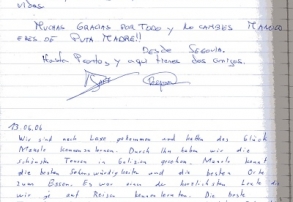 vidas.
MUCHAS GRACIAS POR TODO y NO CAMBIES MANOLO
ERES DE PUTA MADRE!!
DESDE SEGOVIA.
Hasta Pronto, y aquí tienes dos amigos.
13.06.06
Wir sind nach Laxe gekommen und hatten das Glück
Manolo kennenzulernen. Durch ihn haben wir die
schönsten Touren in Galizien gesehen. Manolo kennt
die besten Sehenswürdigkeiten und die besten Orte
zum Essen. Es war einer der herzlichsten Leute die
wir je auf Reisen kennenlernten. Die beste